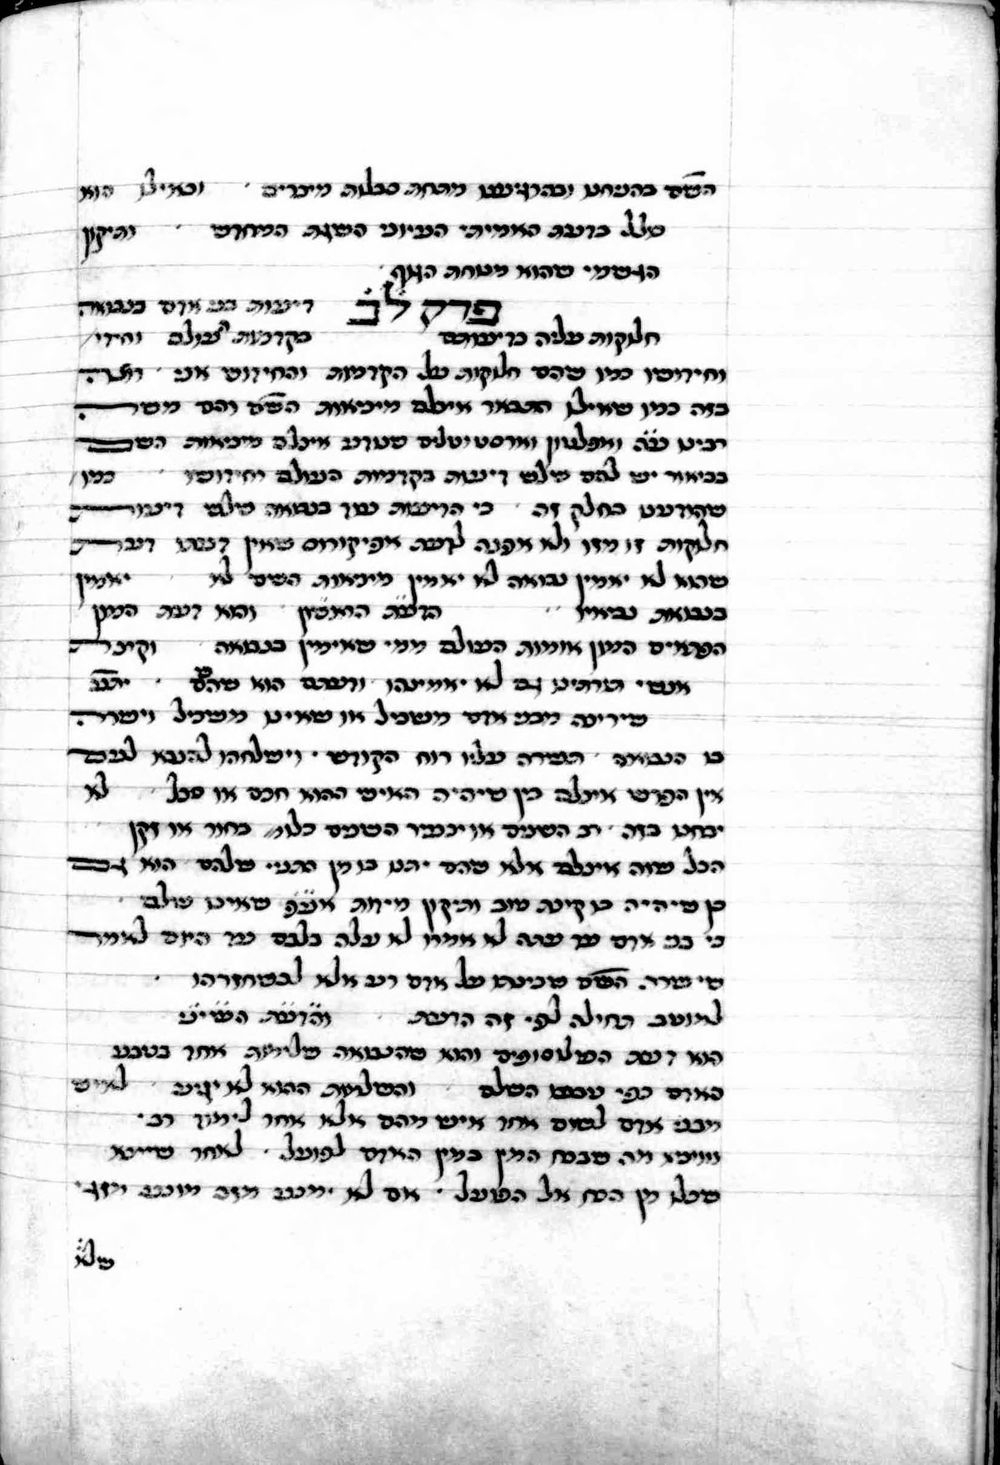 השם בהנחה ובהרגיענו מתחת סבלות מצרים וכאילו הוא
כלל בדעת האמיתי העיוני השגת המחדש ותיקון
הגשמי שהוא מנוחת הגוף
פרק לב דיעות בני אדם בנבואה
חלוקות עליה כדיעותם בקדמות העולם וחידו
וחידושו כמו שהם חלוקות על הקדמות והחידוש אני רוצה
בזה כמו שאילו התבאר אצלם מציאות השם והם משה
רבינו ע״ה ואפלטון וארסטוטליס שנודע אצלם מציאות השם
בביאור יש להם שלש דיעות בקדמות העולם וחידושו כמו
שהודענו בחלק זה כי הדיעות עוד בנבואה שלש דיעות
חלוקות זו מזו ולא אפנה לדעת אפיקורוס שאין דעתו דעת
שהוא לא יאמין נבואה לא יאמין מציאות השם לא יאמין
בנבואת נביאיו הדעת הראשון והוא דעת המון
הפתאים המון אומות העולם ממי שאימין בנבואה וקצת
אנשי תורתינו גם לא יאמינהו ודעתם הוא שהשם יתע׳
שירצה מבני אדם משכיל או שאינו משכיל וישרה
בו הנבואה תשרה עליו רוח הקודש וישלחהו להנבא לנבא
אין הפרש אצלם בין שיהיה האיש ההוא חכם או סכל לא
יבחנו בזה רב השנים או יבציר השנים כלו׳ בחור או זקן
הכל שוה אצלם אלא שהם יתנו בו מן התנאי שלהם הוא גם
כן שיהיה בו קצת טוב ותיקון מידות אע״פ שאינו שלם
כי בני אדם עד עתה לא אמרו לא עלה בלבם עד היום לאמר
שישרה השם שכינתו על אדם רע אלא לכשיחזירהו
למוטב תחילה לפי זה הדעת והדעת השיני
הוא דעת הפילוסופים והוא שהנבואה שלימות אחד בטבע
האדם כפי עצמו השלם והשלימות ההוא לא יגיע לאיש
מבני אדם לשום אחד איש מהם אלא אחר לימוד רב
שיוציא מה שבכח המין במין האדם לפועל לאחר שיצא
שכלו מן הכח אל הפועל אם לא ימנע מזה מונע מזגי